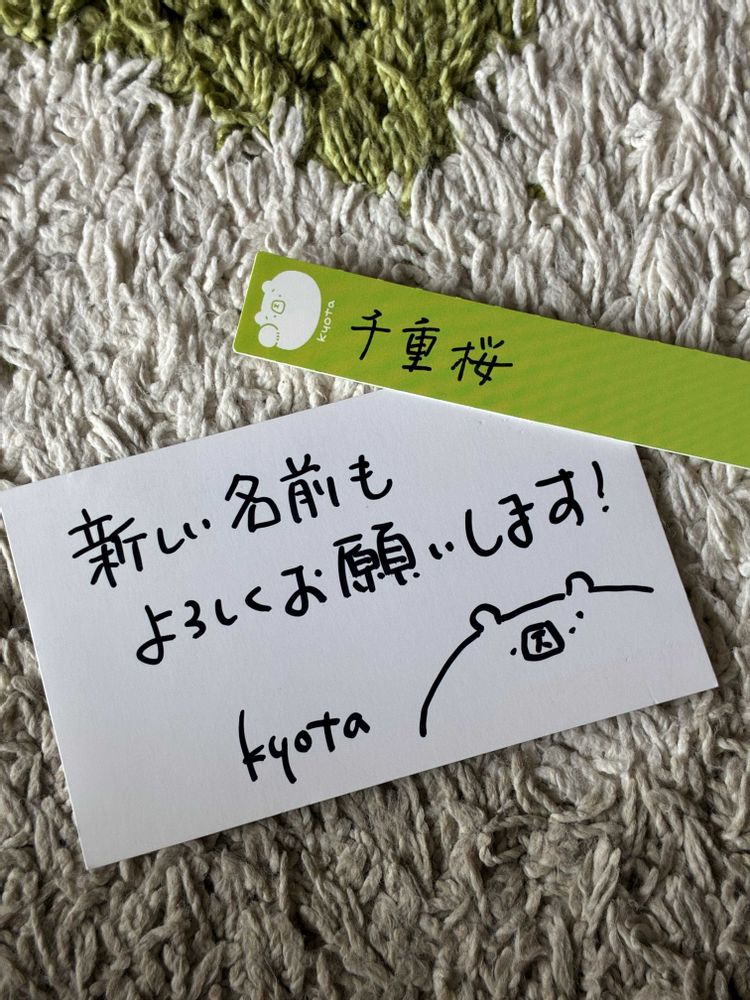 kyota
千重桜
新しい名前も
よろしくお願いします!
kyota